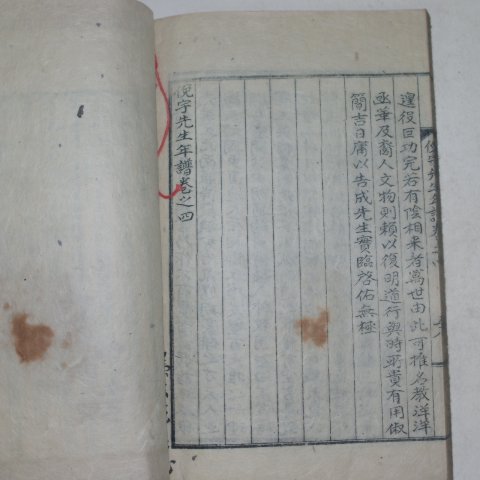 邊役巨功完若有陰相來者爲世由此可推名教洋洋
亟華及裔人文物則賴以復明道行與時所貴有用俶
簡吉日庸以告成先生實臨啓佑無極
俛宇先生年譜卷之四